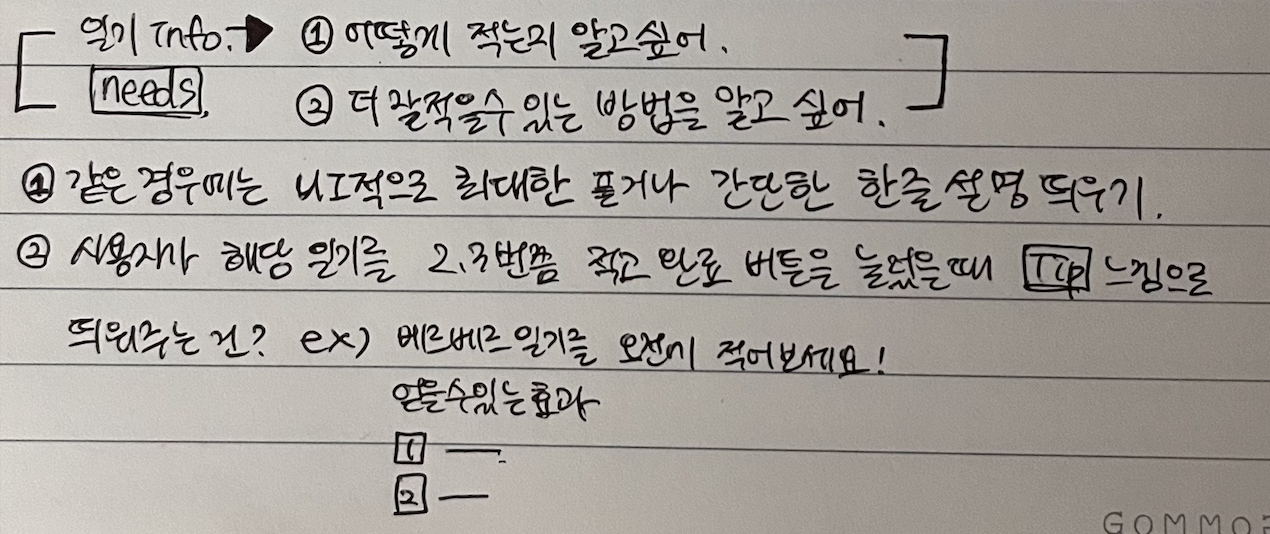 일기 Info. ▶ ① 어떻게 적는지 알고싶어.
needs. ② 더 잘적을수 있는 방법을 알고 싶어.
① 같은 경우에는 UI적으로 최대한 풀거나 간단한 한줄 설명 띄우기.
② 사용자가 해당 일기를 2,3번쯤 적고 완료 버튼을 눌렀을때 Tip 느낌으로
띄워주는건? ex) 베르베르일기를 오전에 적어보세요!
얻을수있는효과
1 —
2 —
GOMMO